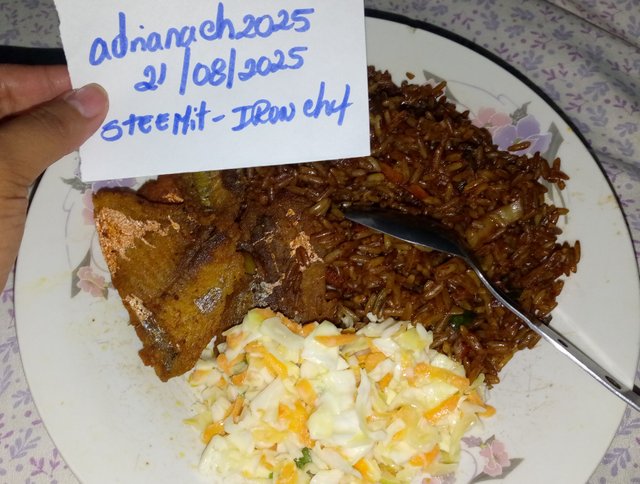 adrianach2025
21/08/2025
STEEMit - IRON chef